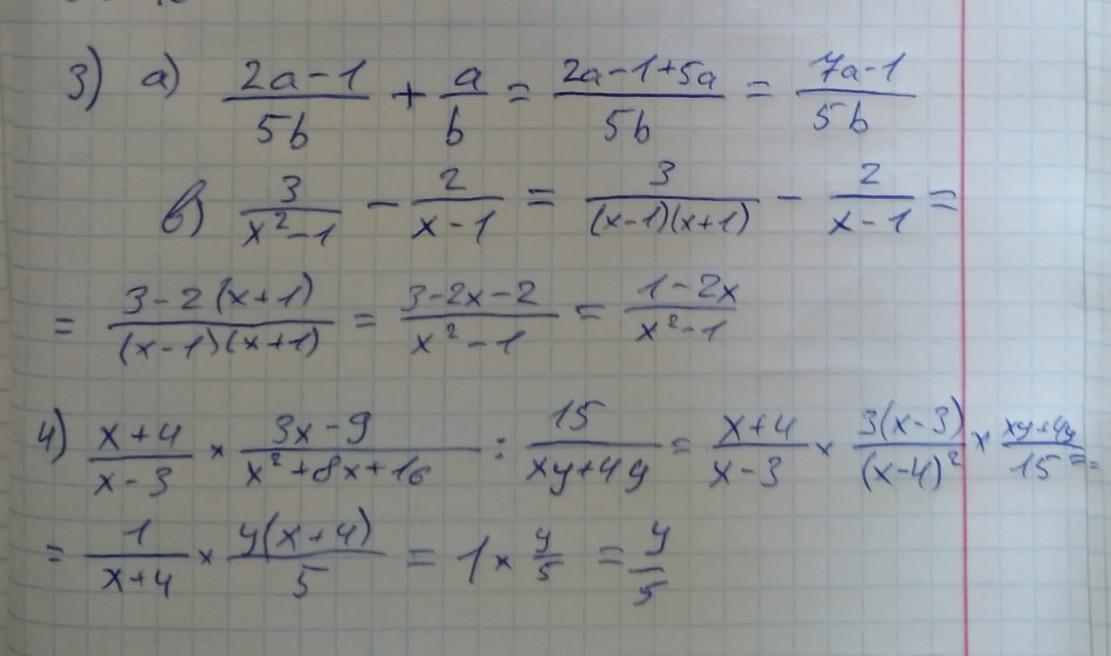 3) а) (2a-1)/(5b) + a/b = (2a-1+5a)/(5b) = (7a-1)/(5b)
в) 3/(x²-1) - 2/(x-1) = 3/((x-1)(x+1)) - 2/(x-1) =
= (3-2(x+1))/((x-1)(x+1)) = (3-2x-2)/(x²-1) = (1-2x)/(x²-1)
4) (x+4)/(x-3) × (3x-9)/(x²+8x+16) : 15/(xy+4y) = (x+4)/(x-3) × (3(x-3))/((x-4)²) × (xy+4y)/15 =
= 1/(x+4) × (y(x+4))/5 = 1 × y/5 = y/5